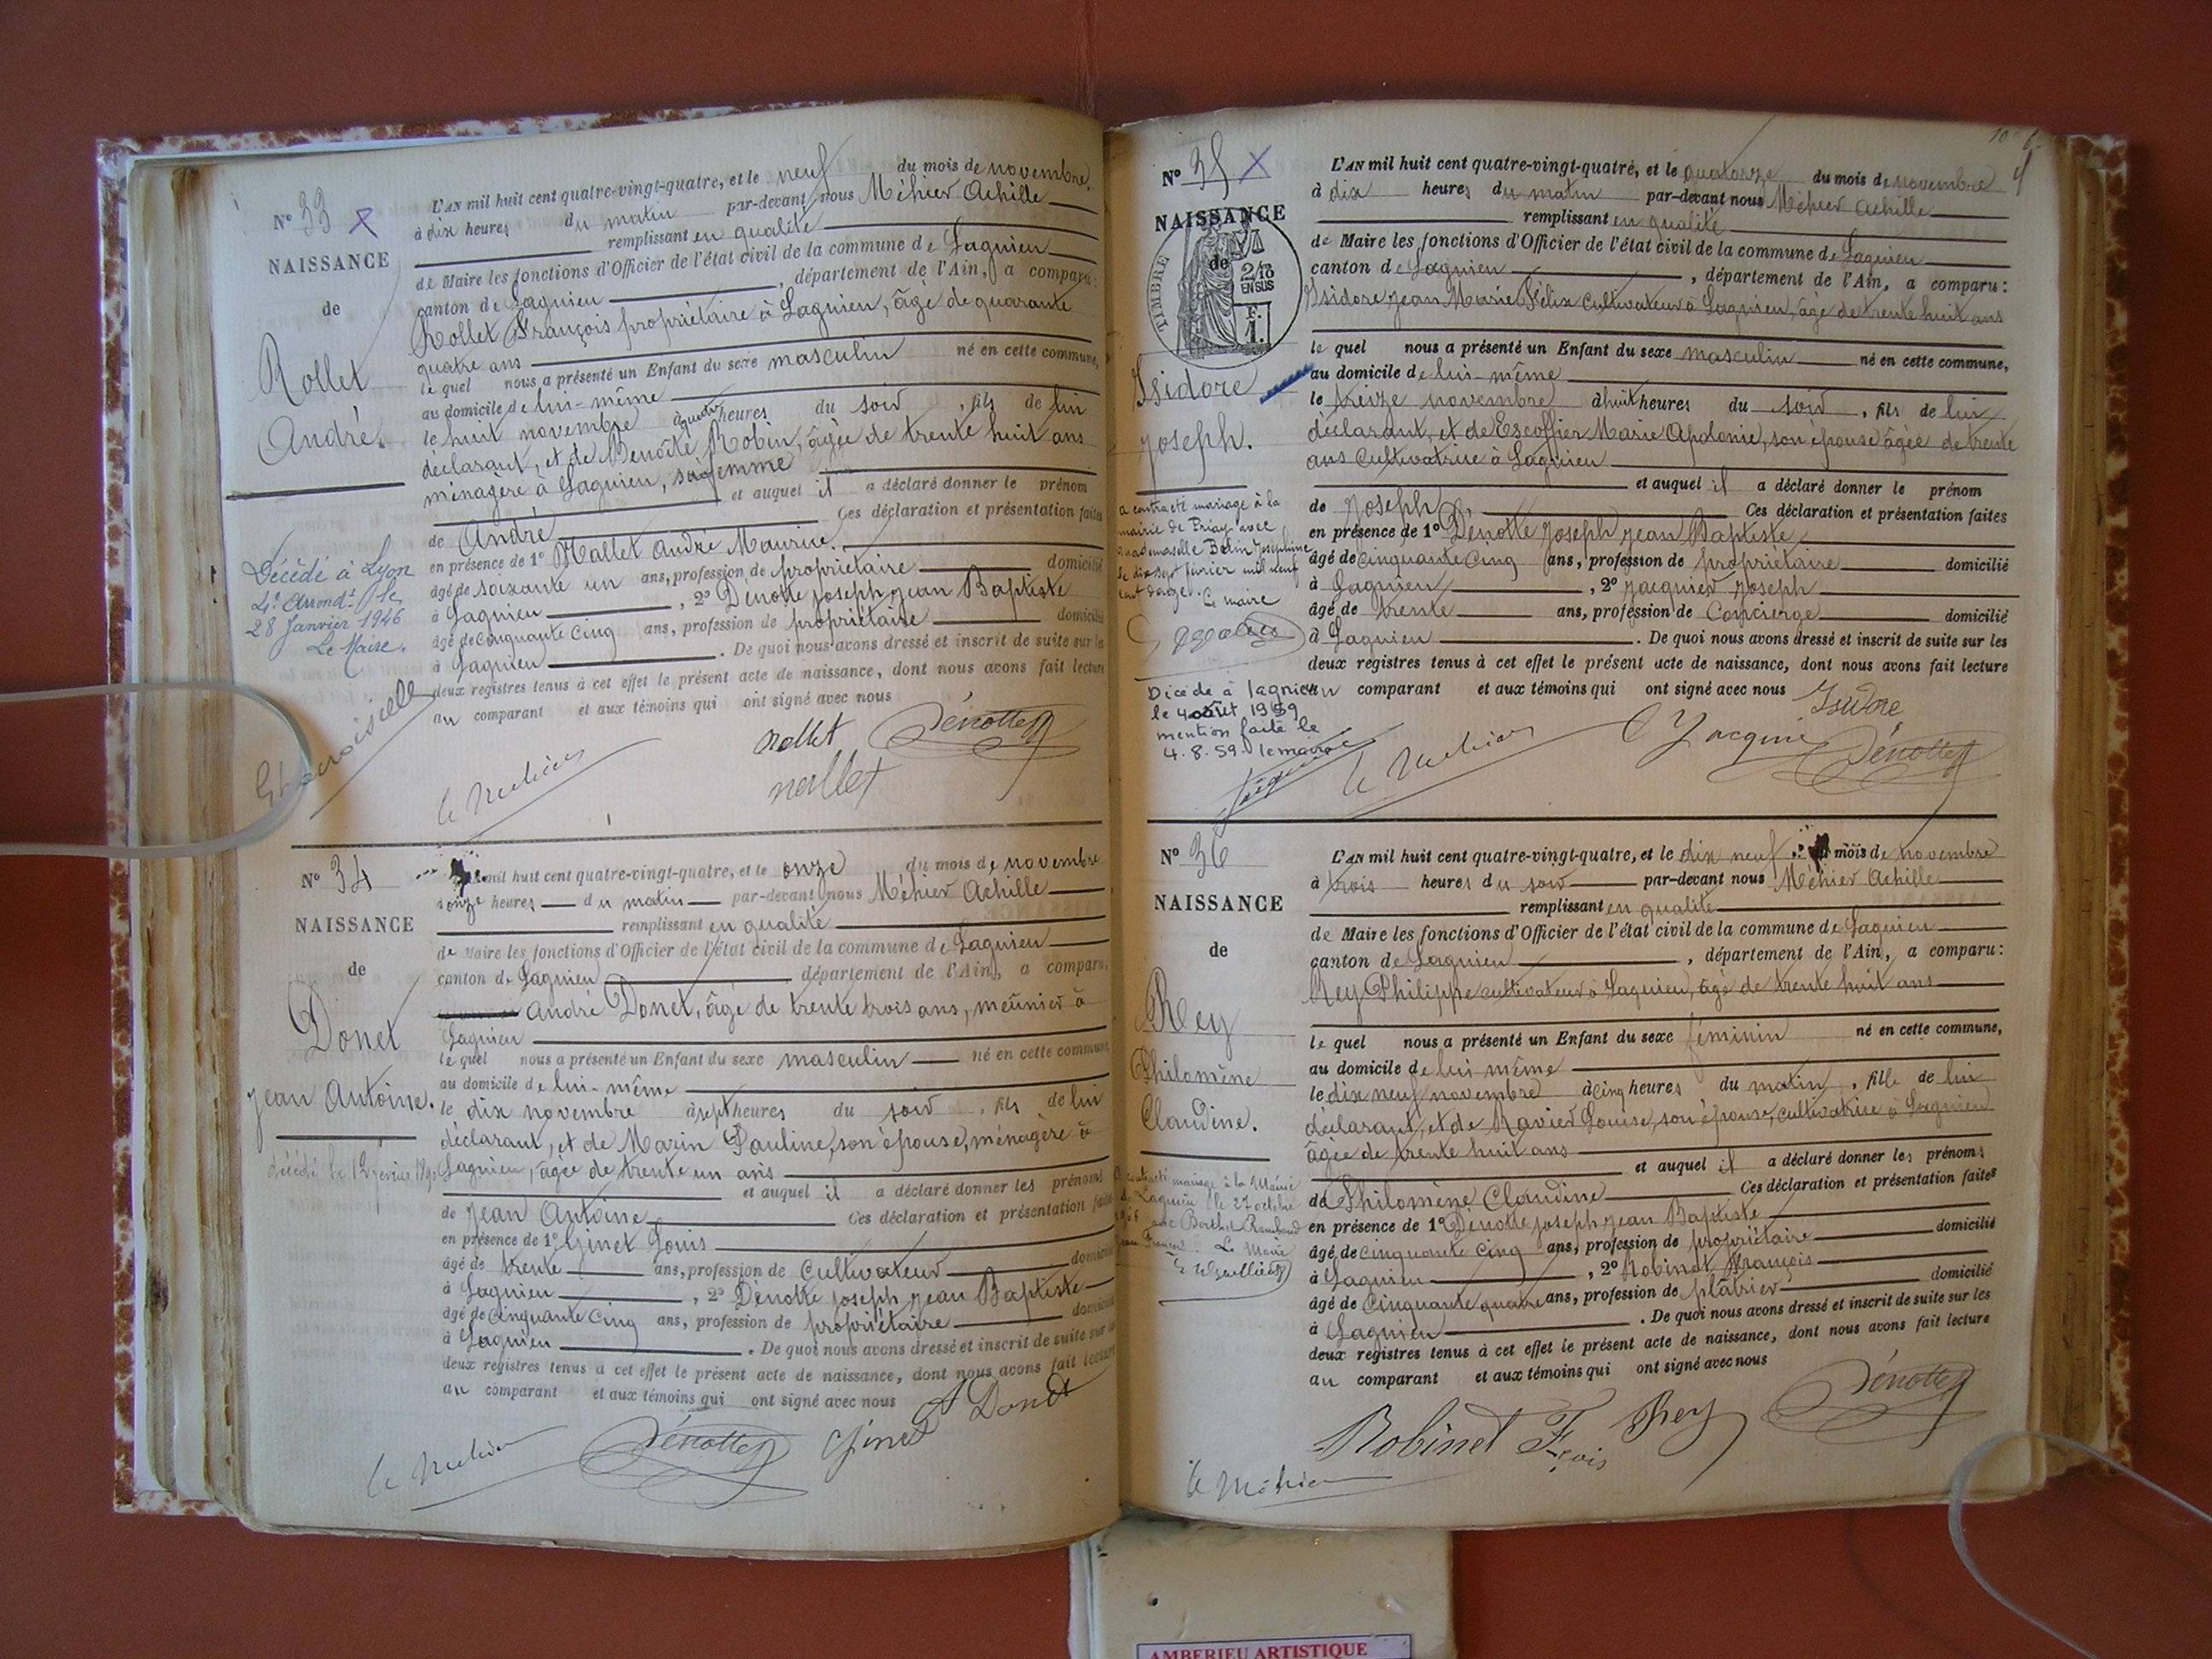 N° 33 X
NAISSANCE
de
Rollet
André.
Décédé à Lyon
4e Arrondt le
28 Janvier 1946
Le Maire.
L'AN mil huit cent quatre-vingt-quatre, et le neuf du mois de novembre,
à dix heures du matin par-devant nous Méhier Achille
remplissant en qualité
de Maire les fonctions d'Officier de l'état civil de la commune de Lagnieu
canton de Lagnieu, département de l'Ain, a comparu:
Rollet François propriétaire à Lagnieu, âgé de quarante
quatre ans
le quel nous a présenté un Enfant du sexe masculin né en cette commune,
au domicile de lui-même
le huit novembre à quatre heures du soir, fils de lui
déclarant, et de Benoîte Robin, âgée de trente huit ans
ménagère à Lagnieu, sa femme
et auquel il a déclaré donner le prénom
de André Ces déclaration et présentation faites
en présence de 1° Mallet André Maurice.
âgé de soixante un ans, profession de propriétaire domicilié
à Lagnieu, 2° Dénotte Joseph Jean Baptiste
âgé de Cinquante Cinq ans, profession de propriétaire domicilié
à Lagnieu. De quoi nous avons dressé et inscrit de suite sur les
deux registres tenus à cet effet le présent acte de naissance, dont nous avons fait lecture
au comparant et aux témoins qui ont signé avec nous
Rollet Dénotte
Mallet
A Méhier
N° 34
NAISSANCE
de
Donet
Jean Antoine.
mil huit cent quatre-vingt-quatre, et le onze du mois de novembre
à onze heures du matin par-devant nous Méhier Achille
remplissant en qualité
de Maire les fonctions d'Officier de l'état civil de la commune de Lagnieu
canton de Lagnieu département de l'Ain, a comparu
André Donet, âgé de trente trois ans, meunier à
Lagnieu
le quel nous a présenté un Enfant du sexe masculin né en cette commune
au domicile de lui-même
le dix novembre à sept heures du soir, fils de lui
déclarant, et de Marin Pauline, son épouse, ménagère à
Lagnieu, âgée de trente un ans
et auquel il a déclaré donner les prénoms
de Jean Antoine Ces déclaration et présentation faites
en présence de 1° Ginet Louis
âgé de trente ans, profession de Cultivateur domicilié
à Lagnieu, 2° Dénotte Joseph Jean Baptiste
âgé de Cinquante Cinq ans, profession de propriétaire domicilié
à Lagnieu. De quoi nous avons dressé et inscrit de suite sur les
deux registres tenus à cet effet le présent acte de naissance, dont nous avons fait lecture
au comparant et aux témoins qui ont signé avec nous
A Donet
Méhier Dénotte Ginet
N° 35 X
NAISSANCE
de
TIMBRE
2/10
EN SUS
F.
1.
Isidore
Joseph.
a contracté mariage à la
mairie de Priay avec
mademoiselle Belin Joséphine
le dix sept février mil neuf
cent douze.
Le maire
Décédé à Lagnieu
le 4 août 1959
mention faite le
4.8.59. le maire
L'AN mil huit cent quatre-vingt-quatre, et le quatorze du mois de novembre
à dix heures du matin par-devant nous Méhier Achille
remplissant en qualité
de Maire les fonctions d'Officier de l'état civil de la commune de Lagnieu
canton de Lagnieu, département de l'Ain, a comparu:
Isidore Jean Marie Félix Cultivateur à Lagnieu, âgé de trente huit ans
le quel nous a présenté un Enfant du sexe masculin né en cette commune,
au domicile de lui-même
le treize novembre à huit heures du soir, fils de lui
déclarant, et de Escoffier Marie Apolonie, son épouse âgée de trente
ans Cultivatrice à Lagnieu
et auquel il a déclaré donner le prénom
de Joseph. Ces déclaration et présentation faites
en présence de 1° Dénotte Joseph Jean Baptiste
âgé de cinquante cinq ans, profession de propriétaire domicilié
à Lagnieu, 2° Jacquier Joseph
âgé de trente ans, profession de Concierge domicilié
à Lagnieu. De quoi nous avons dressé et inscrit de suite sur les
deux registres tenus à cet effet le présent acte de naissance, dont nous avons fait lecture
au comparant et aux témoins qui ont signé avec nous
Isidore
Méhier Jacquier Dénotte
N° 36
NAISSANCE
de
Rey
Philomène
Claudine.
a contracté mariage à la Mairie
de Lagnieu le 27 octobre
Le Maire
L'AN mil huit cent quatre-vingt-quatre, et le dix neuf mois de novembre
à trois heures du soir par-devant nous Méhier Achille
remplissant en qualité
de Maire les fonctions d'Officier de l'état civil de la commune de Lagnieu
canton de Lagnieu, département de l'Ain, a comparu:
Rey Philippe cultivateur à Lagnieu, âgé de trente huit ans
le quel nous a présenté un Enfant du sexe féminin né en cette commune,
au domicile de lui même
le dix neuf novembre à cinq heures du matin, fille de lui
déclarant, et de Ravier Louise, son épouse, cultivatrice à Lagnieu
âgée de trente huit ans
et auquel il a déclaré donner les prénoms
de Philomène Claudine Ces déclaration et présentation faites
en présence de 1° Dénotte Joseph Jean Baptiste
âgé de cinquante cinq ans, profession de propriétaire domicilié
à Lagnieu, 2° Robinet François
âgé de Cinquante quatre ans, profession de plâtrier domicilié
à Lagnieu. De quoi nous avons dressé et inscrit de suite sur les
deux registres tenus à cet effet le présent acte de naissance, dont nous avons fait lecture
au comparant et aux témoins qui ont signé avec nous
Robinet Fçois Rey Dénotte
Méhier
AMBERIEU ARTISTIQUE